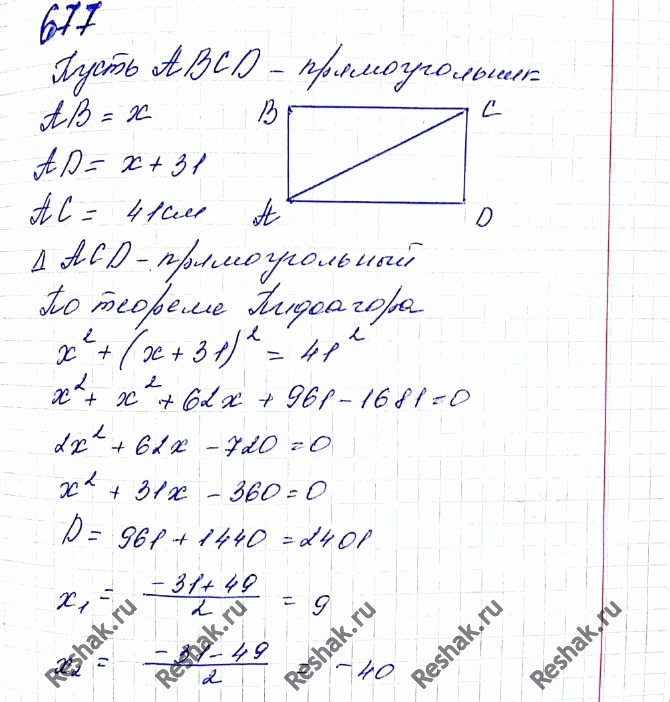 677
Пусть ABCD - прямоугольник
AB = x
B C
AD = x + 31
AC = 41см
A D
Δ ACD - прямоугольный
По теореме Пифагора
x² + (x + 31)² = 41²
x² + x² + 62x + 961 - 1681 = 0
2x² + 62x - 720 = 0
x² + 31x - 360 = 0
D = 961 + 1440 = 2401
x₁ = (-31 + 49)/2 = 9
x₂ = (-31 - 49)/2 = -40
Reshak.ru Reshak.ru Reshak.ru Reshak.ru Reshak.ru